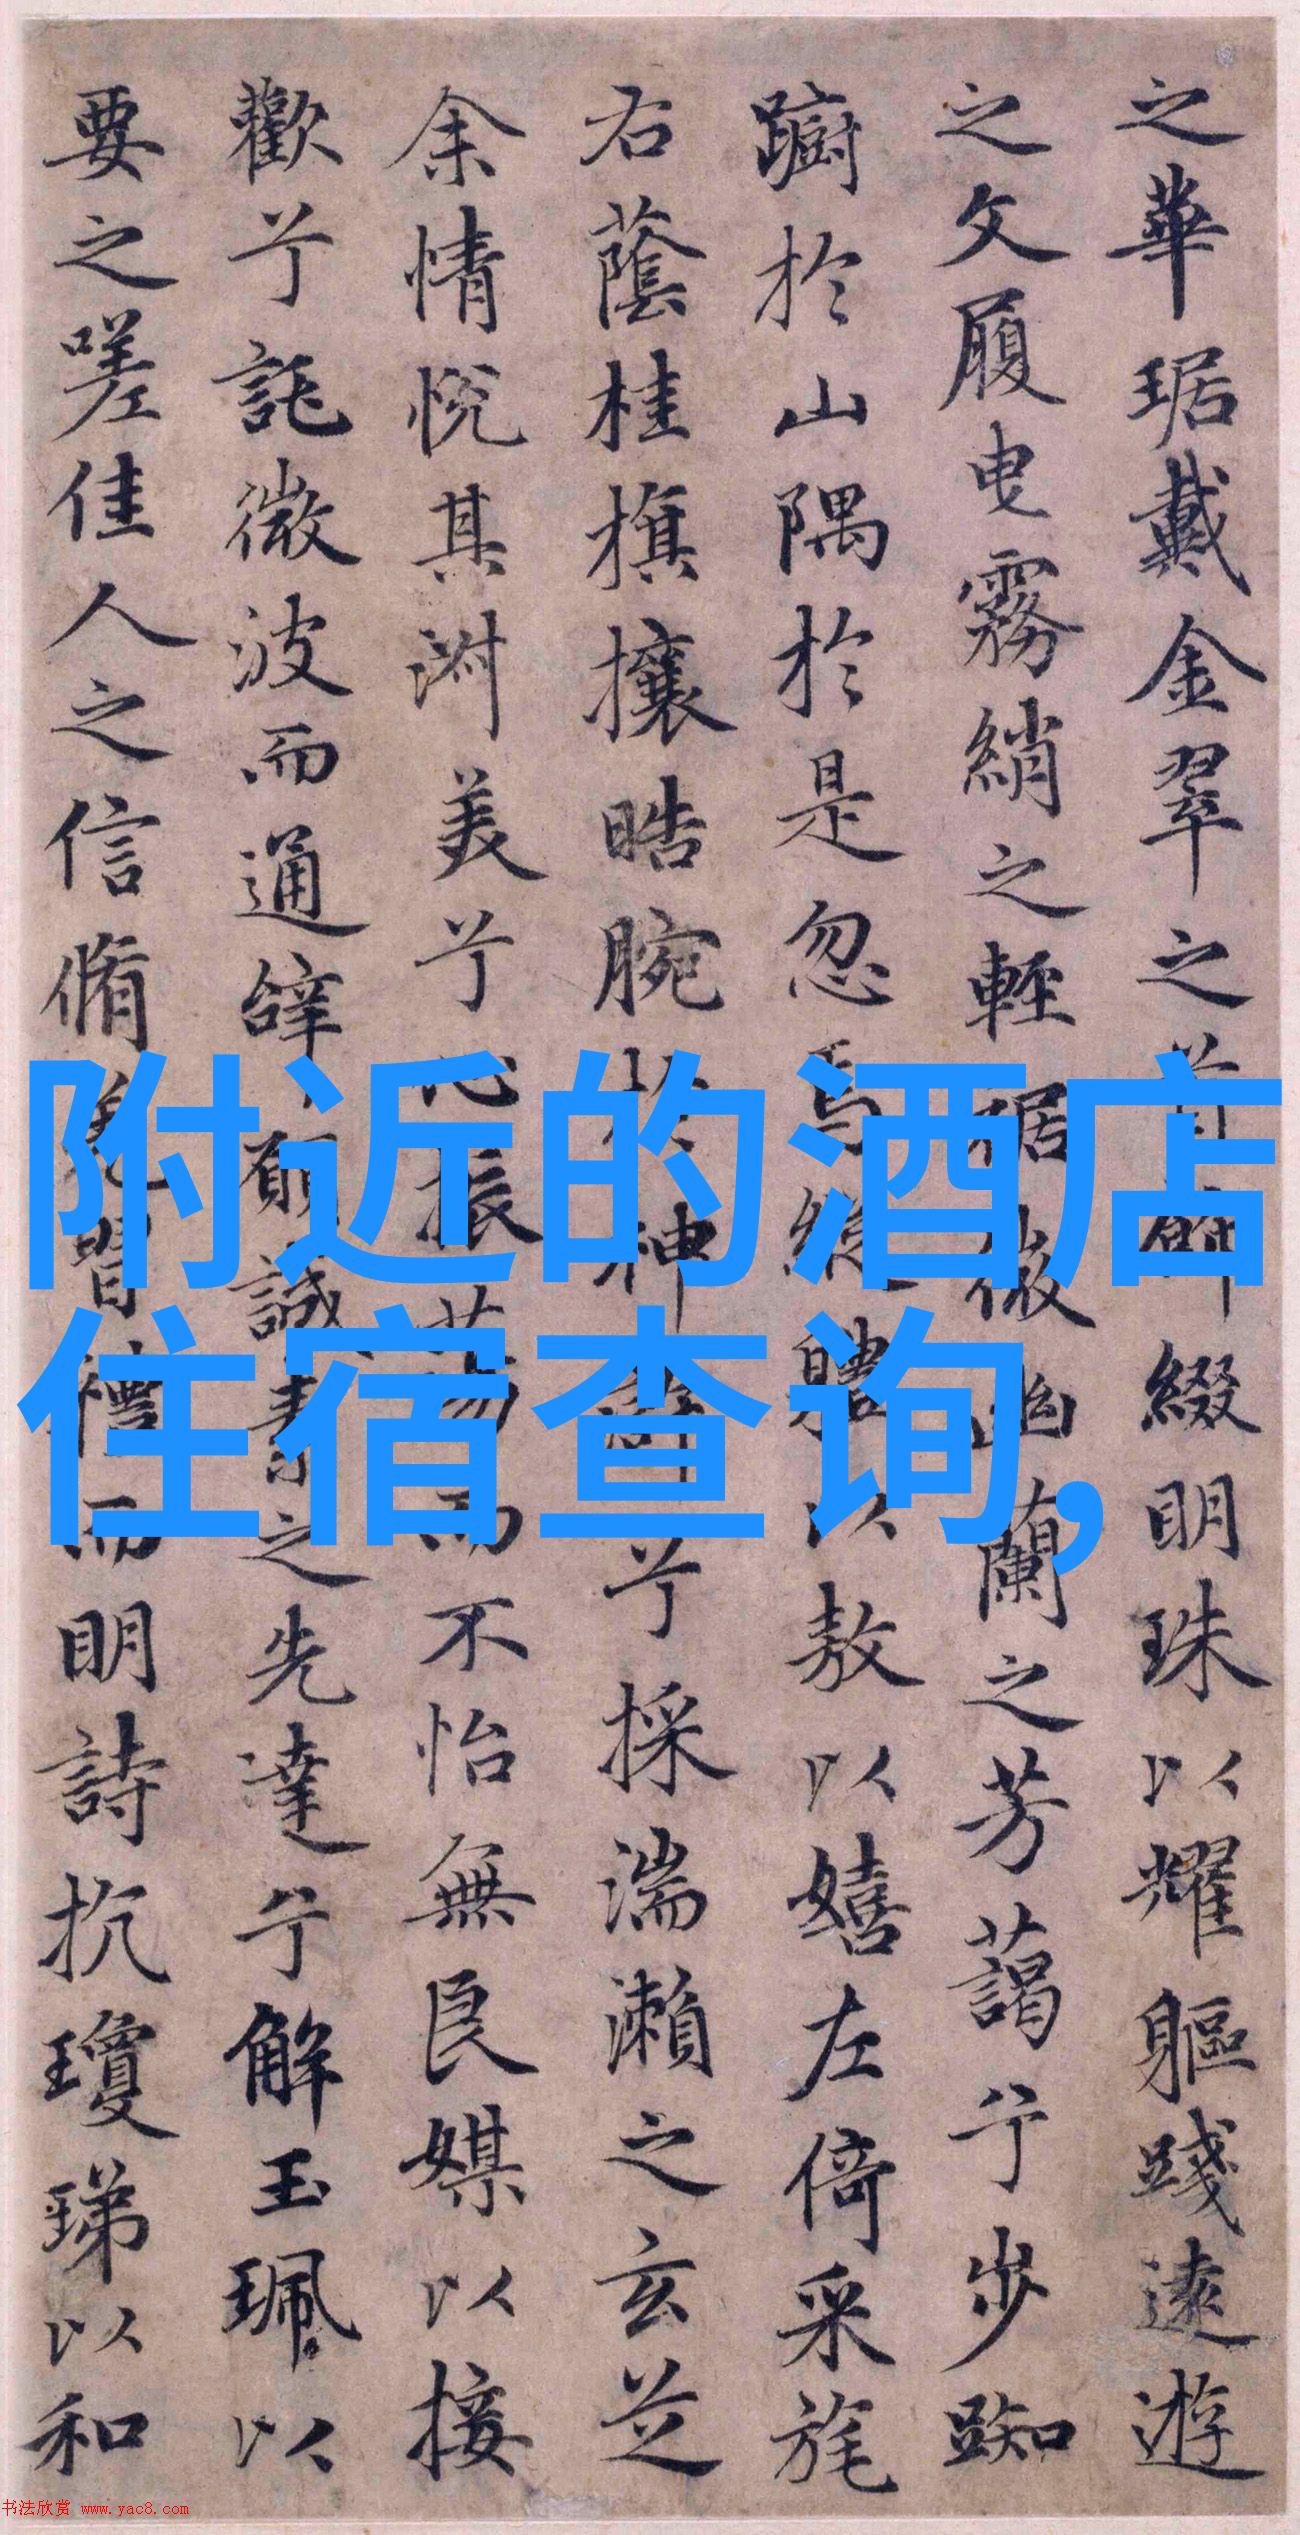 之華琚戴金翠之首飾綴明珠以耀軀踐遠遊
之文履曳霧綃之輕裾微幽蘭之芳藹兮步踟
躕於山隅於是忽焉縱體以敖以嬉左倚采旄
右蔭桂旗攘晧腕於神滸兮採湍瀨之玄芝
余情悅其淑美兮心振蕩而不怡無良媒以接
歡兮託微波而通辭願誠素之先達兮解玉珮以
要之嗟佳人之信脩羌習禮而明詩抗瓊珶以和
附近的酒店
住宿查询,
书法欣赏 www.yac8.com